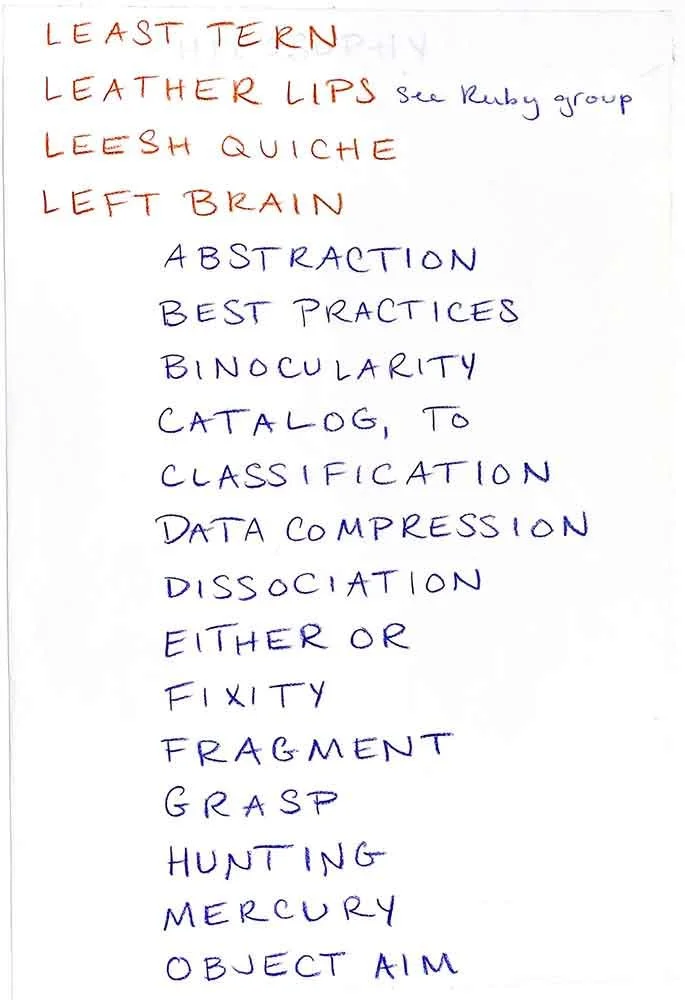 LEAST TERN
LEATHER LIPS see Ruby group
LEESH QUICHE
LEFT BRAIN
ABSTRACTION
BEST PRACTICES
BINOCULARITY
CATALOG, TO
CLASSIFICATION
DATA COMPRESSION
DISSOCIATION
EITHER OR
FIXITY
FRAGMENT
GRASP
HUNTING
MERCURY
OBJECT AIM